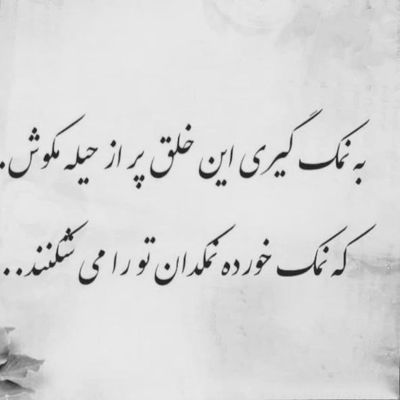 به نمک گیری این خلق پر از حیله مکوش.
که نمک خورده نمکدان تو را می شکنند..